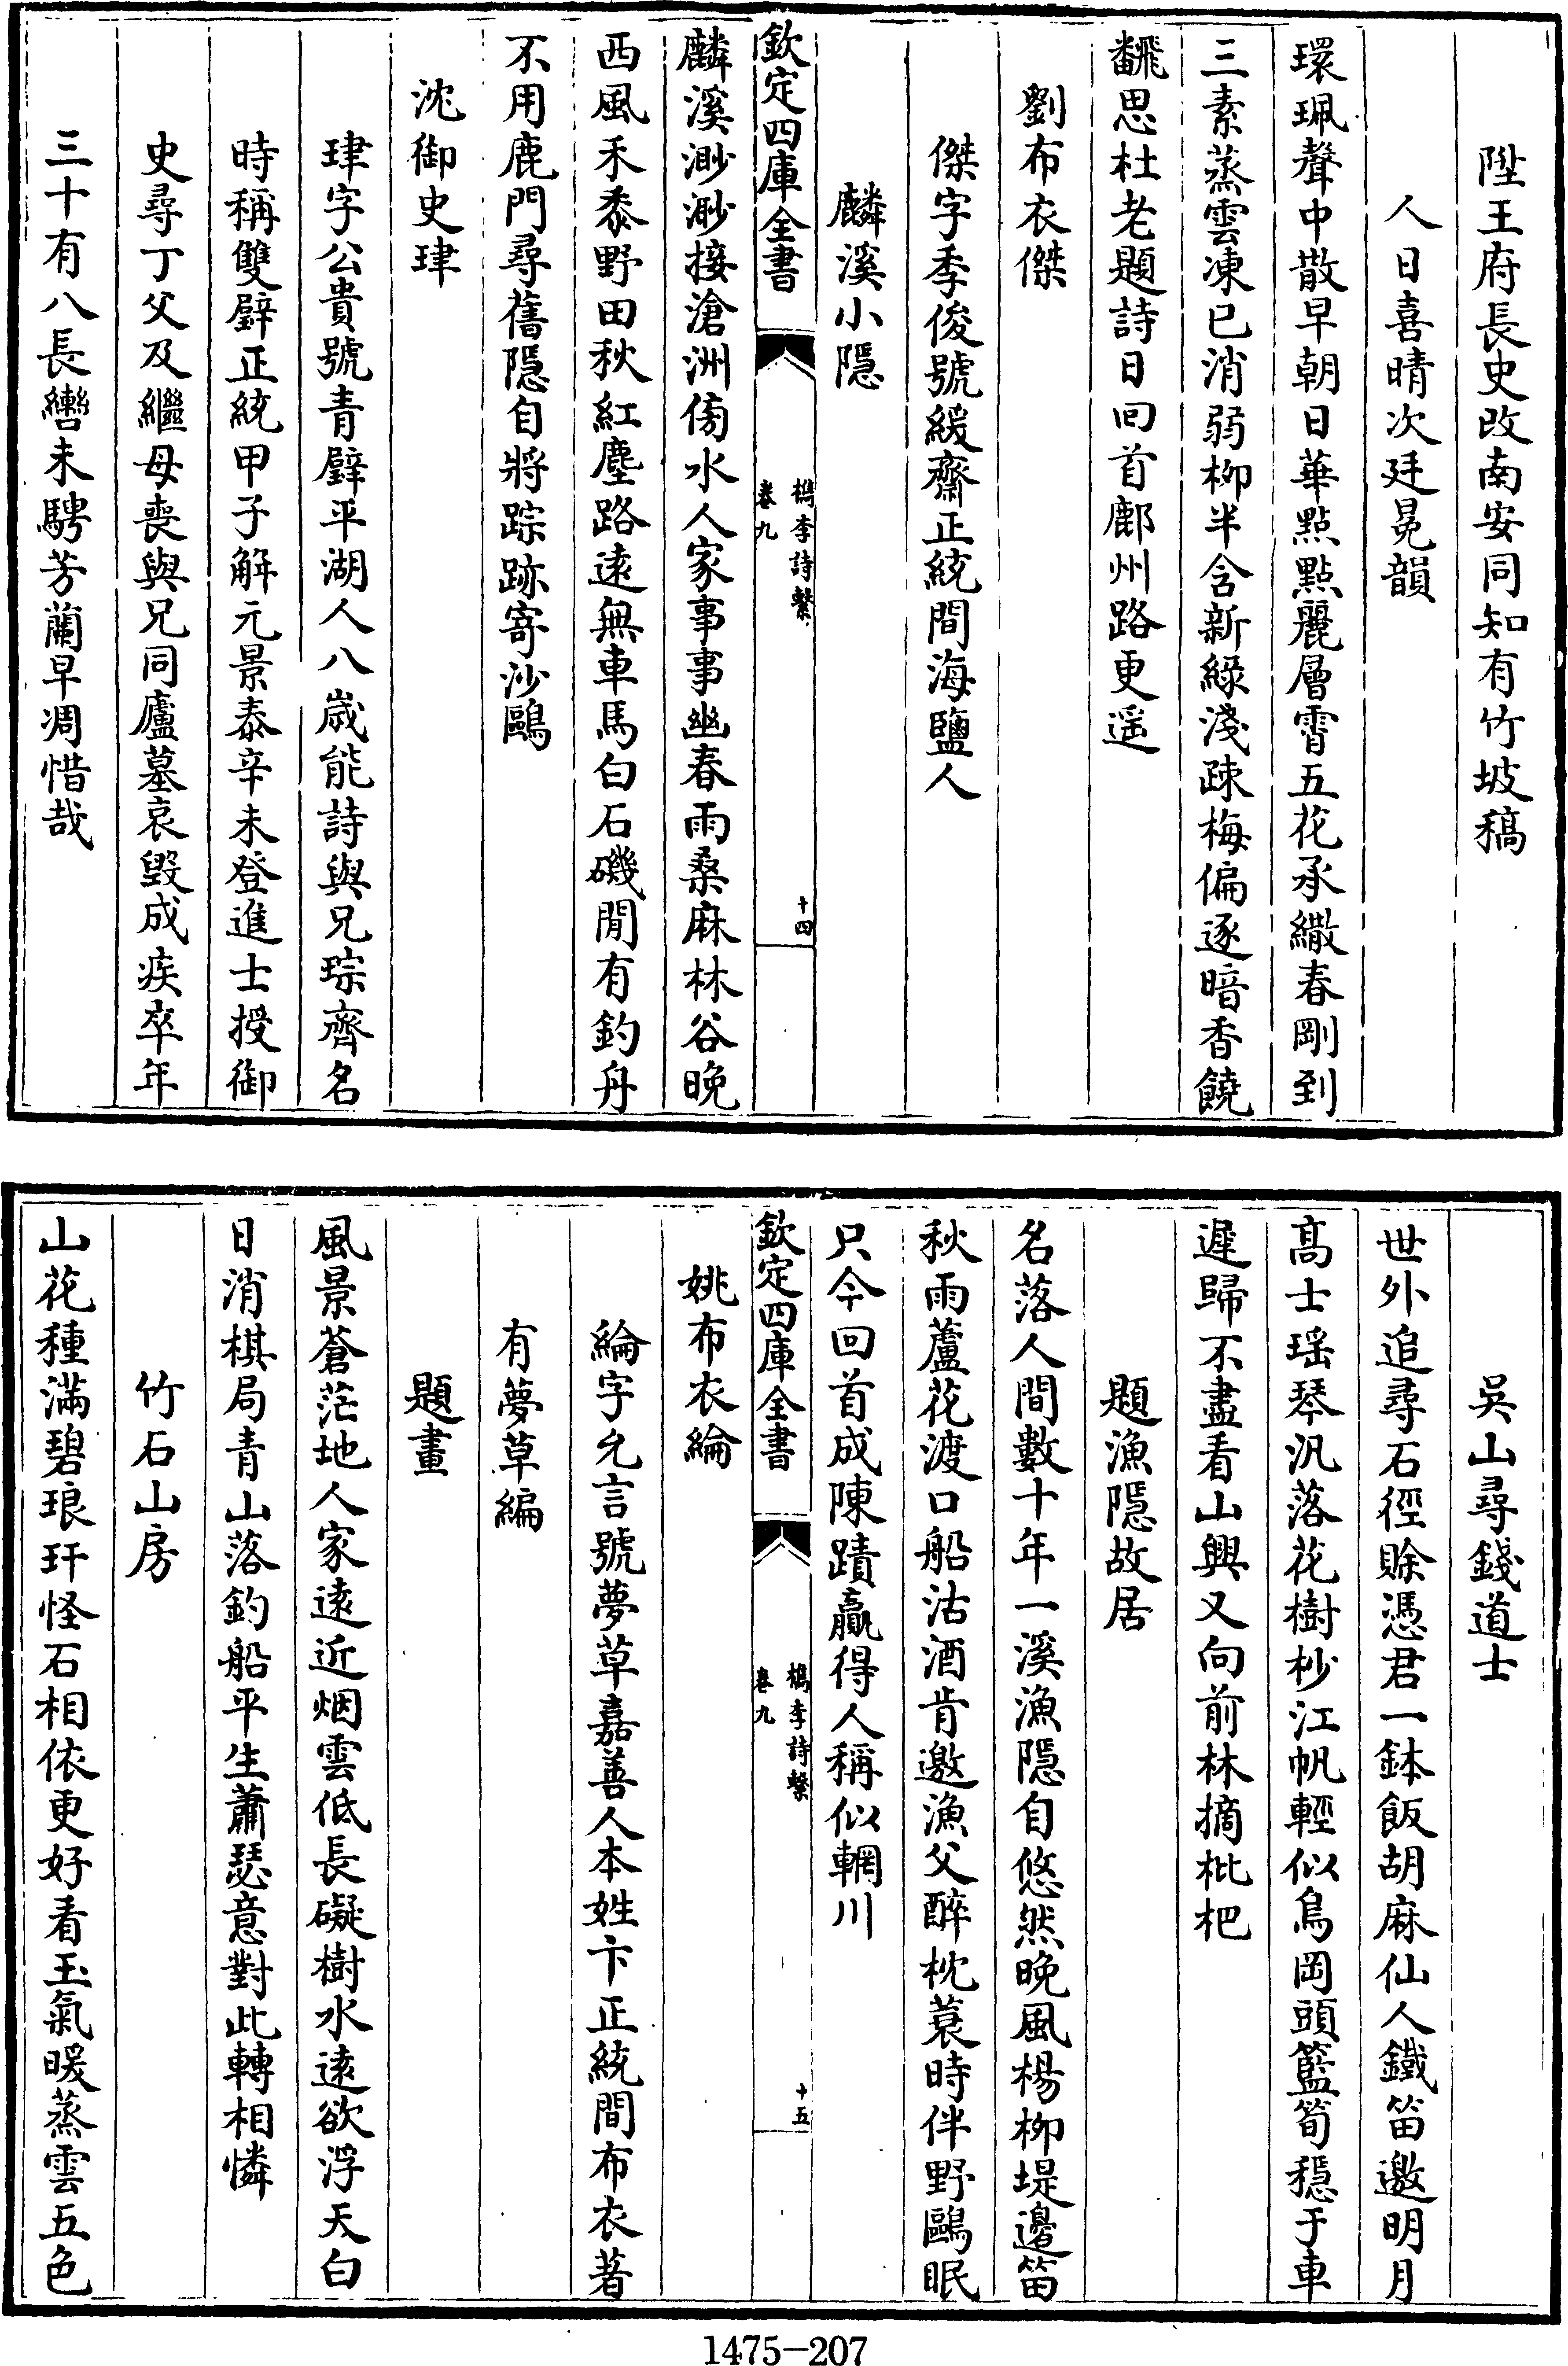 陞王府長史改南安同知有竹坡稿
人日喜晴次廷冕韻
環珮聲中散早朝日華點點麗層霄五花承繖春剛到
三素蒸雲凍已消弱柳半含新緑淺疎梅偏逐暗香饒
飜思杜老題詩日回首鄜州路更遥
劉布衣傑
傑字季俊號緩齋正統間海鹽人
麟溪小隱
欽定四庫全書
檇李詩繫
卷九
十四
麟溪渺渺接滄洲傍水人家事事幽春雨桑麻林谷晚
西風禾黍野田秋紅塵路遠無車馬白石磯閒有釣舟
不用鹿門尋舊隱自將踪跡寄沙鷗
沈御史琿
琿字公貴號青壁平湖人八歳能詩與兄琮齊名
時稱雙壁正統甲子解元景泰辛未登進士授御
史尋丁父及繼母喪與兄同廬墓哀毁成疾卒年
三十有八長轡未騁芳蘭早凋惜哉
吳山尋錢道士
世外追尋石徑賒憑君一鉢飯胡麻仙人鐵笛邀明月
髙士瑶琴汎落花樹杪江帆輕似鳥岡頭籃筍穩于車
遲歸不盡看山興又向前林摘枇杷
題漁隱故居
名落人間數十年一溪漁隱自悠然晚風楊柳堤邊笛
秋雨蘆花渡口船沽酒肯邀漁父醉枕蓑時伴野鷗眠
只今回首成陳蹟贏得人稱似輞川
欽定四庫全書
檇李詩繫
卷九
十五
姚布衣綸
綸字允言號夢草嘉善人本姓卞正統間布衣著
有夢草編
題畫
風景蒼茫地人家遠近烟雲低長礙樹水遠欲浮天白
日消棋局青山落釣船平生蕭瑟意對此轉相憐
竹石山房
山花種滿碧琅玕怪石相依更好看玉氣暖蒸雲五色
1475-207